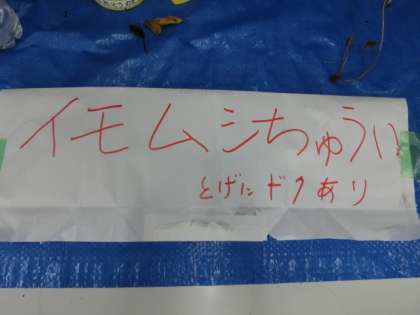 イモムシちゅうい
とげにドクあり